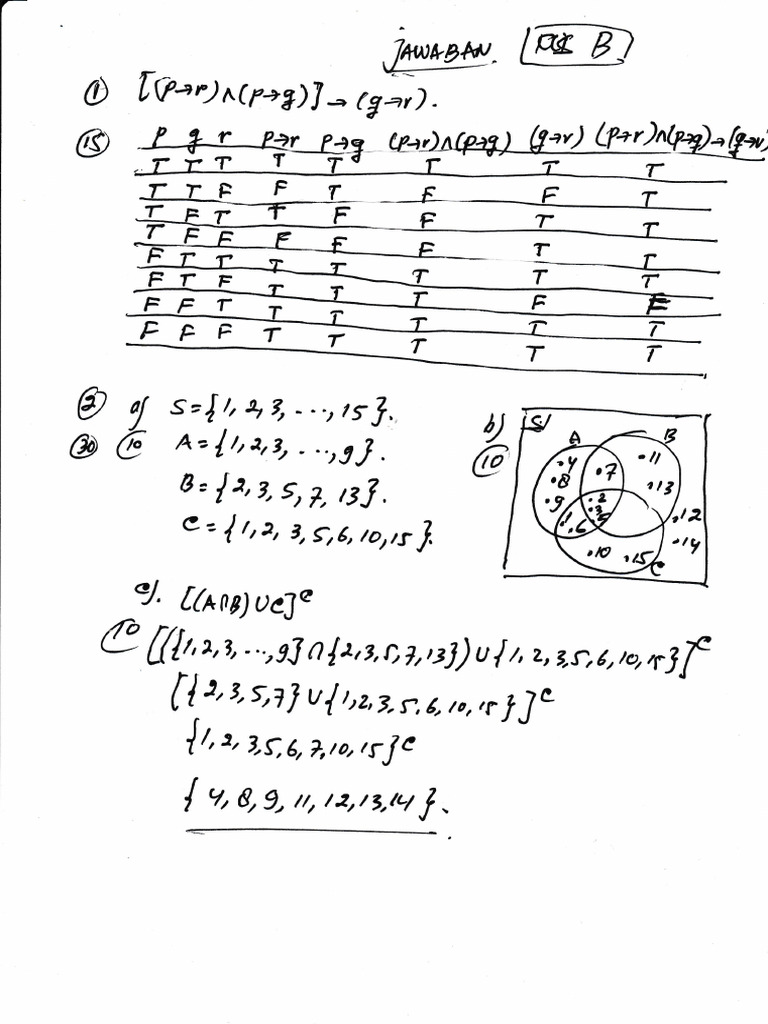 JAWABAN B
① [(p→r)∧(p→q)]→(q→r).
⑮ p q r p→r p→q (p→r)∧(p→q) (q→r) (p→r)∧(p→q)→(q→r)
T T T T T T T T
T T F F T F F T
T F T T F F T T
T F F F F F T T
F T T T T T T T
F T F T T T F F
F F T T T T T T
F F F T T T T T
② a) S={1,2,3,...,15}.
㉚ ⑩ A={1,2,3,...,9}.
B={2,3,5,7,13}.
C={1,2,3,5,6,10,15}.
b) S
⑩ A B
.4 .7 .11
.8 .13
.9 .2
.3 .12
.1 .6 .5 .14
.10 .15 C
c). [(A∩B)∪C]ᶜ
⑩ [({1,2,3,...,9}∩{2,3,5,7,13})∪{1,2,3,5,6,10,15}]ᶜ
[{2,3,5,7}∪{1,2,3,5,6,10,15}]ᶜ
{1,2,3,5,6,7,10,15}ᶜ
{4,8,9,11,12,13,14}.